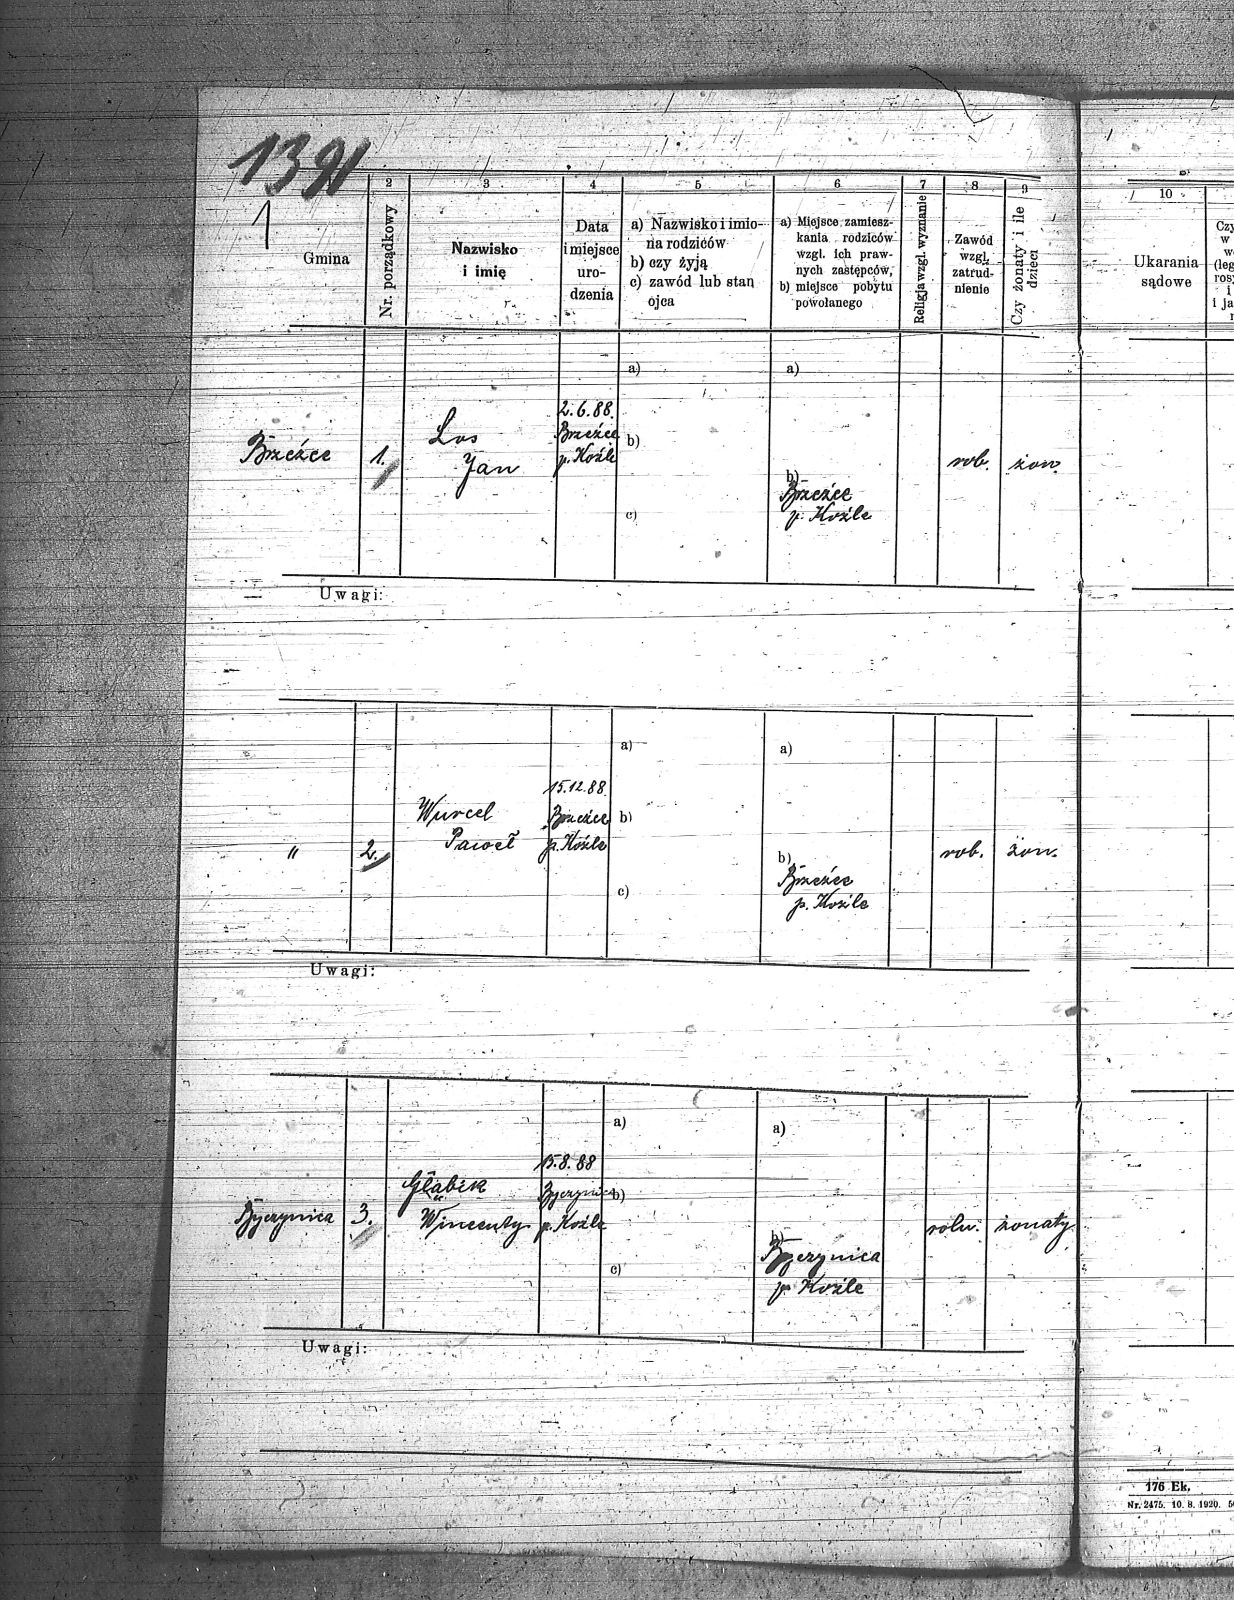 1391
1
2
3
4
5
6
7
8
9
10
Gmina
Nr. porządkowy
Nazwisko
i imię
Data
i miejsce
uro-
dzenia
a) Nazwisko i imio-
na rodziców
b) czy żyją
c) zawód lub stan
ojca
a) Miejsce zamiesz-
kania rodziców
wzgl. ich praw-
nych zastępców,
b) miejsce pobytu
powołanego
Religja wzgl. wyznanie
Zawód
wzgl.
zatrud-
nienie
Czy żonaty i ile
dzieci
Ukarania
sądowe
Brzeźce
1.
Los
Jan
2.6.88.
Brzeźce
p. Koźle
a)
b)
c)
a)
b)
Brzeźce
p. Koźle
rob.
żon.
Uwagi:
"
2.
Wurcel
Paweł
15.12.88.
Brzeźce
p. Koźle
a)
b)
c)
a)
b)
Brzeźce
p. Koźle
rob.
żon.
Uwagi:
Byczynica
3.
Głąbik
Wincenty
15.8.88
Byczynica
p. Koźle
a)
b)
c)
a)
b)
Byczynica
p. Koźle
roln.
żonaty
Uwagi:
176 Ek.
Nr. 2475. 10. 8. 1920.